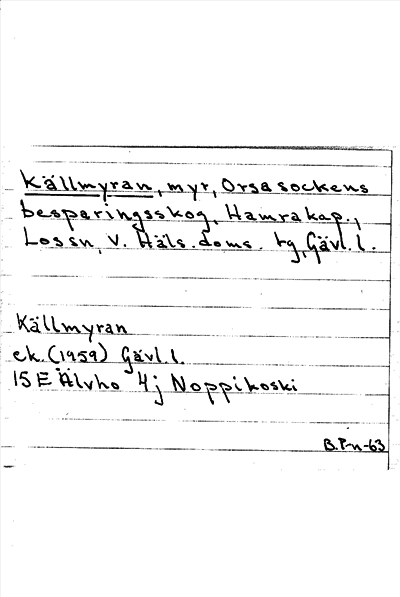 Källmyran, myr, Orsa sockens
besparingsskog, Hamra kap.,
Lossn, V. Häls. doms. tg, Gävl. l.
Källmyran
ek. (1959) Gävl. l.
15 E Älvho 4j Noppikoski
B.P-n-63